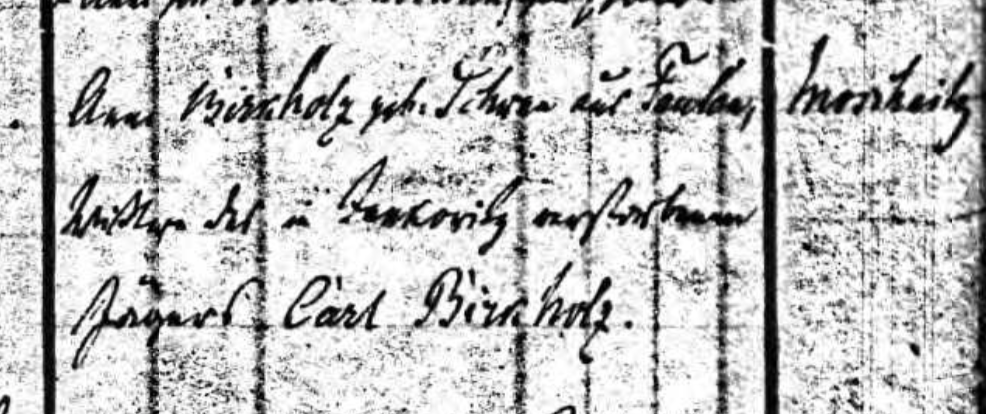 Anna Birkholz geb. Schwan aus
Wittwe des in Jankovitz verstorbenen
Jägers Carl Birkholz.